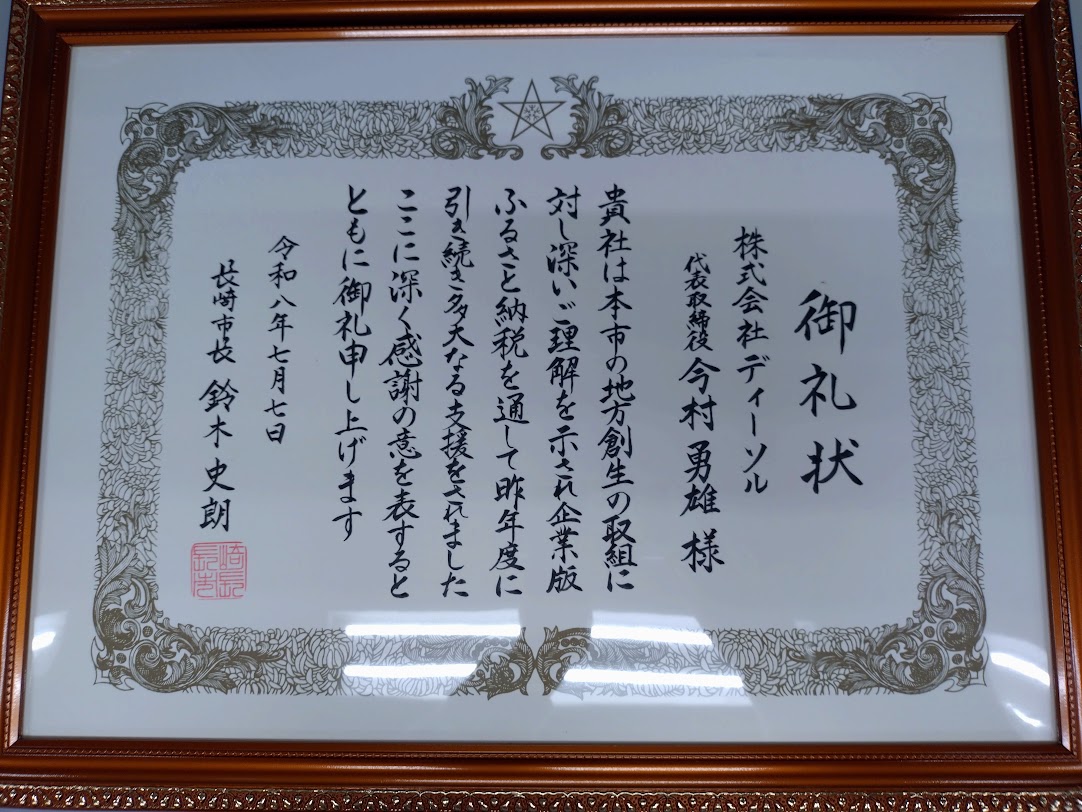 御礼状
株式会社ディーソル
代表取締役 今村勇雄 様
貴社は本市の地方創生の取組に
対し深いご理解を示され企業版
ふるさと納税を通して昨年度に
引き続き多大なる支援をされました
ここに深く感謝の意を表すると
ともに御礼申し上げます
令和八年七月七日
長崎市長 鈴木史朗
長崎市長